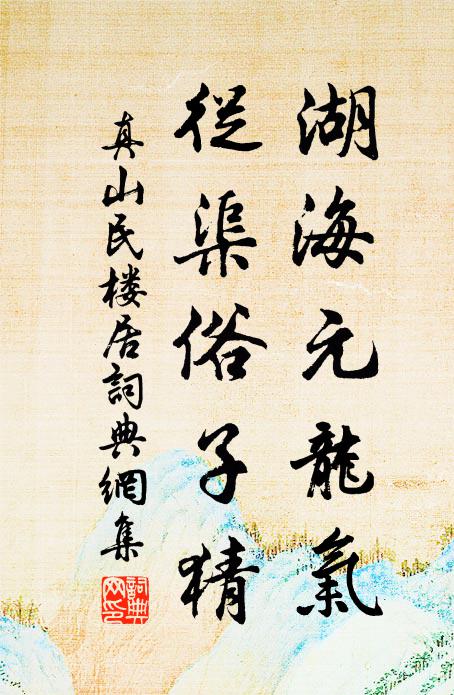 湖海元龍氣
從渠俗子猜
真山民楼居詞典網集
詞典网印